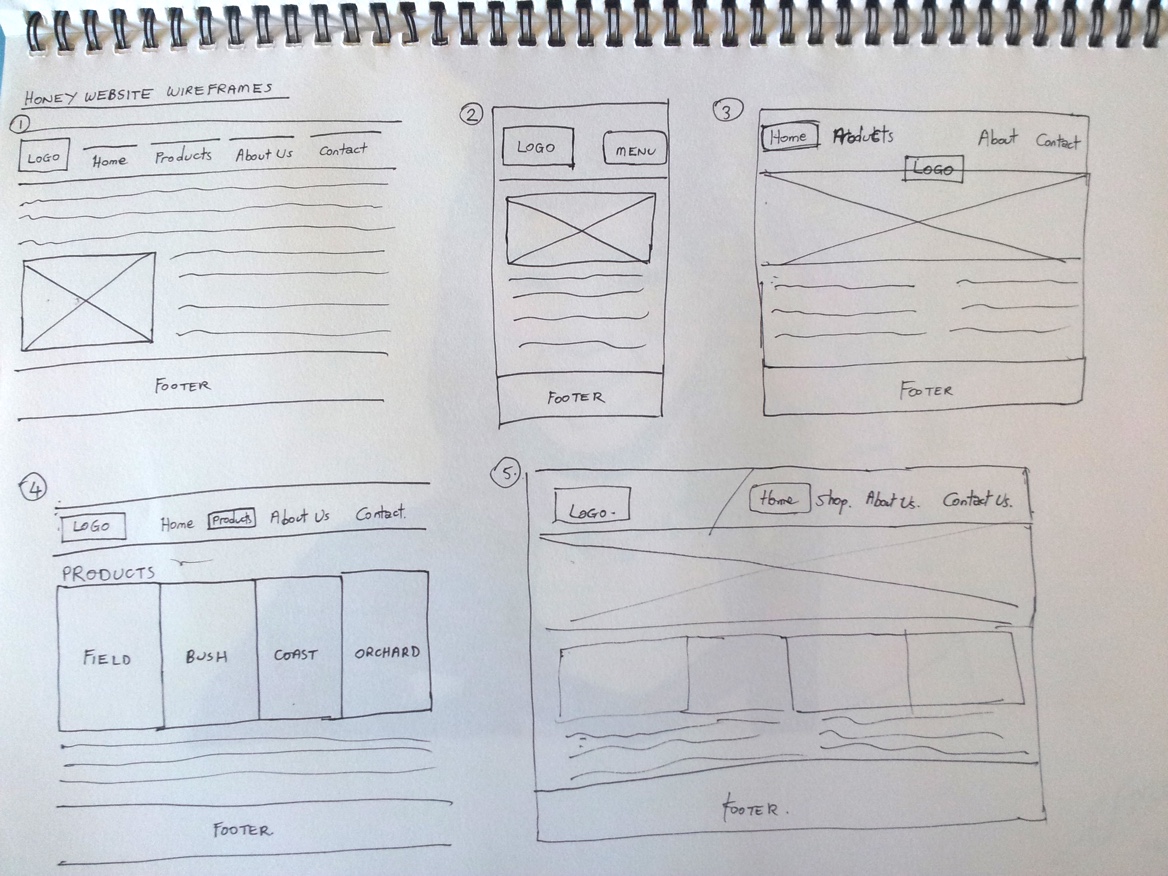 HONEY WEBSITE WIREFRAMES
1
LOGO Home Products About Us Contact
FOOTER
2
LOGO MENU
FOOTER
3
Home Products About Contact
LOGO
FOOTER
4
LOGO Home Products About Us Contact.
PRODUCTS
FIELD BUSH COAST ORCHARD
FOOTER
5.
LOGO. Home Shop. About Us. Contact Us.
FOOTER.